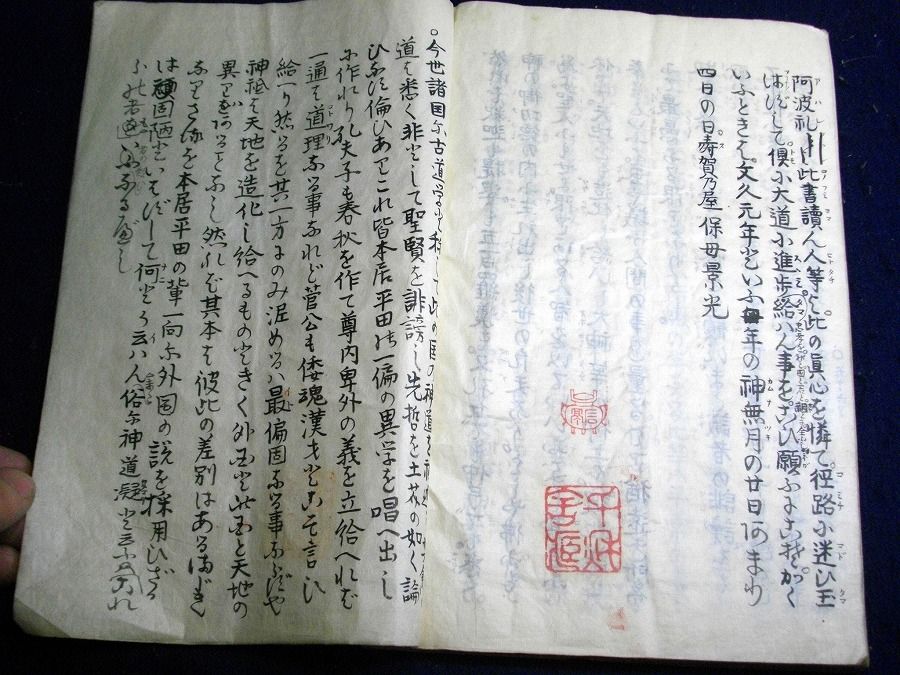 阿波礼此書讀ん人等よ此の眞心を憐て徑路小迷ひ玉
はずして倶小大道小進歩給はん事をこひ願ふになむかく
いふときは文久元年といふ年の神無月の廿日あまり
四日の日壽賀乃屋保母景光
。今世諸国尓古道学と称して此国の神道を
道は悉く非として聖賢を誹謗し先哲を土芥の如く論
ひなす倫ひあり これ皆本居平田の一偏の異学を唱へ出し
尓作れり 孔夫子も春秋を作て尊内卑外の義を立給へれど
一通は道理なる事なれば菅公も倭魂漢才とこそ言ひ
給へり然るを其一方にのみ泥めるは最偏固なる事ならずや
神祇は天地を造化し給へるものときく外国と此国と天地の
異りあることなし然れば其本は彼此の差別はあるまじく
なりさるを本居平田の輩一向尓外国の説を採用ひざる
は頑固陋といはずして何とか云はん俗尓神道凝と云
の者なるべし